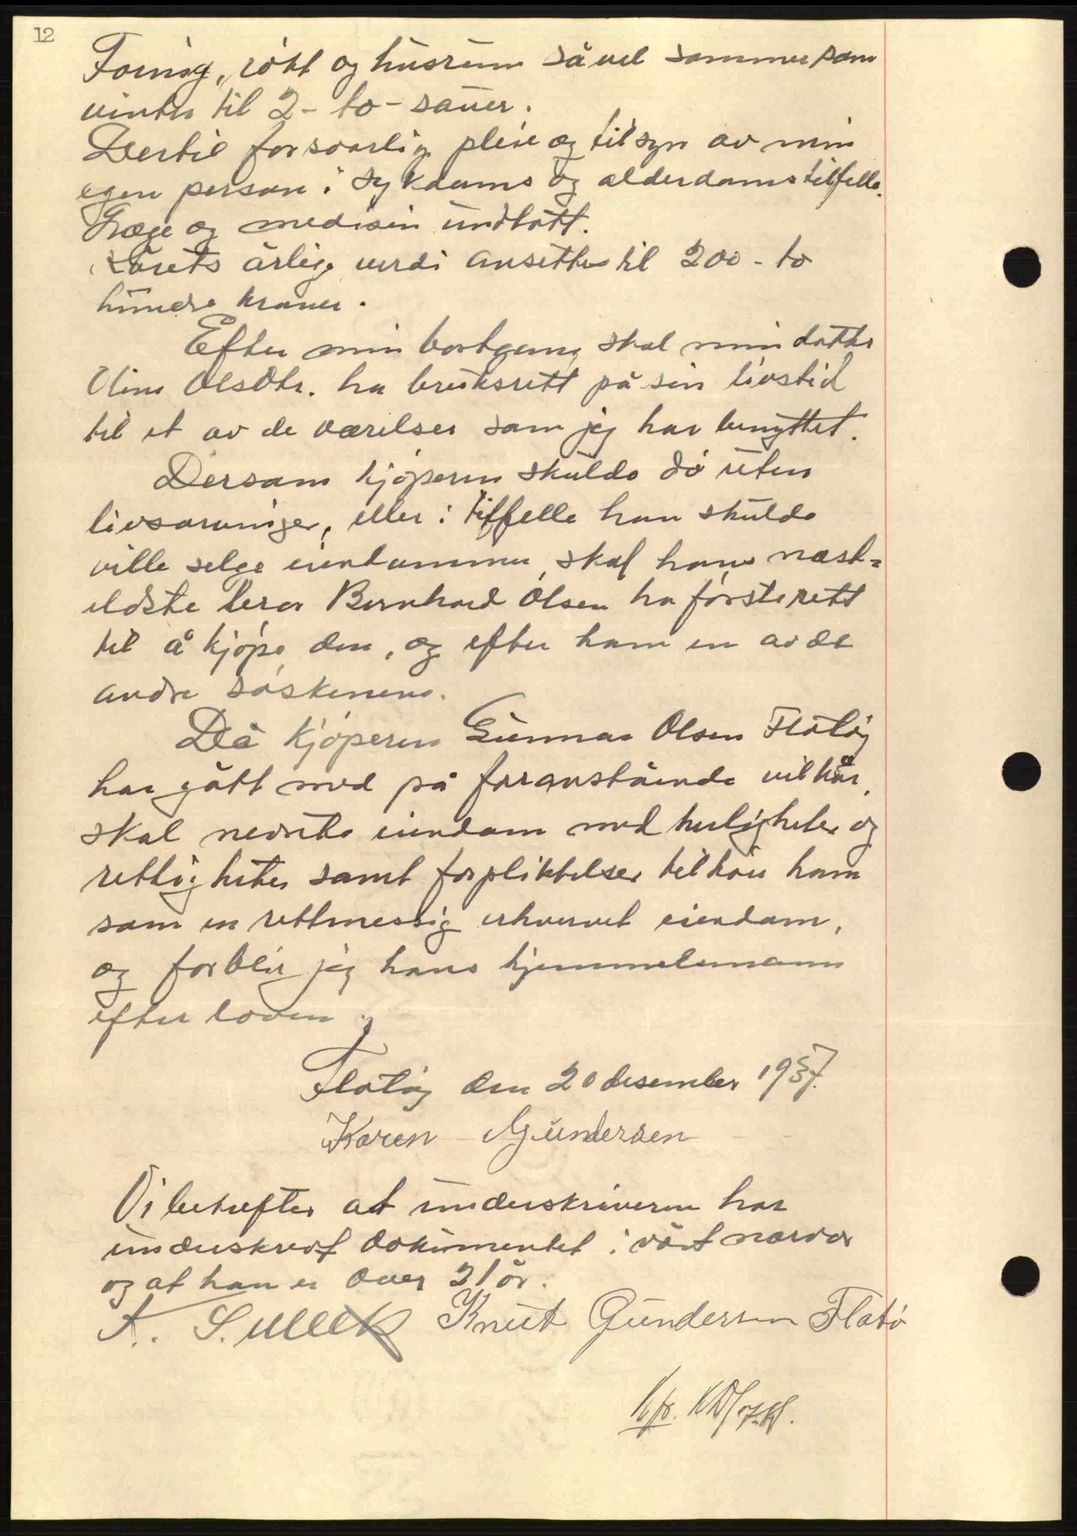 12
Foring, røkt og husrum såvel sommer som
vinter til 2 - to - sauer.
Dertil forsvarlig pleie og tilsyn av min
egen person i sykdoms og alderdoms tilfelle.
Læge og medisin undtatt.
Kårets årlige verdi ansettes til 200 - to
hundre kroner.
Efter min bortgang skal min datter
Oline Olsdtr. ha bruksrett på sin livstid
til et av de værelser som jeg har benyttet.
Dersom kjøperen skulde dø uten
livsarvinger, eller i tilfelle han skulde
ville selge eiendommen, skal hans næst-
eldste bror Bernhard Olsen ha første rett
til å kjøpe den, og efter ham en av de
andre søskenene.
Då kjøperen Gunnar Olsen Flatøy
har gått med på foranstående vilkår,
skal nevnte eiendom med herligheter og
rettigheter samt forpliktelser tilhøre ham
som en rettmessig erhvervet eiendom,
og forblir jeg hans hjemmelsmann
efter loven.
Flatøy den 20 desember 1937.
Karen Gundersen
Vi bekrefter at underskriveren har
underskrevet dokumentet i vårt nærvær
og at han er over 21 år.
A. S. Knut Gundersen Flatø